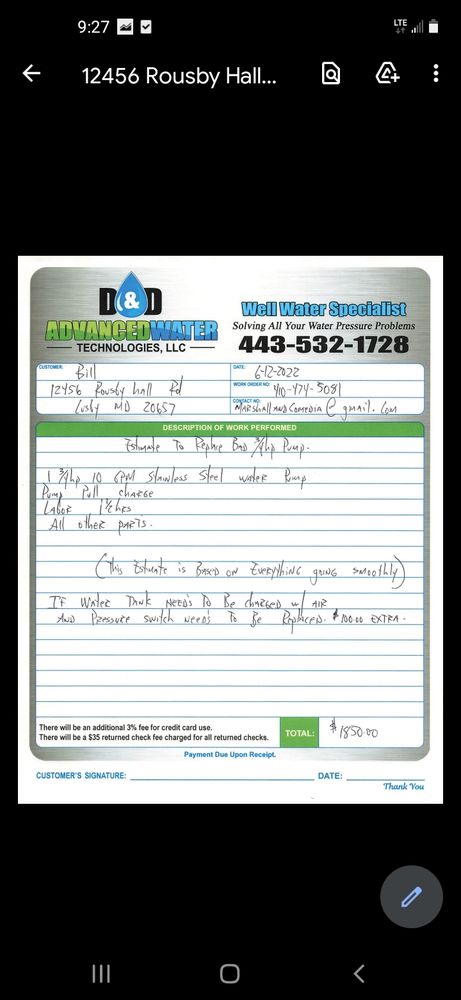 9:27
LTE
12456 Rousby Hall...
D&D
ADVANCED WATER
TECHNOLOGIES, LLC
Well Water Specialist
Solving All Your Water Pressure Problems
443-532-1728
CUSTOMER: Bill
DATE: 6-12-2022
12456 Rousby hall Rd
WORK ORDER NO: 410-474-5081
Lusby MD 20657
CONTACT NO: MARShallANDComedia@gmail.com
DESCRIPTION OF WORK PERFORMED
Estimate To Replace Bad 3/4hp Pump.
1 3/4hp 10 GPM Stainless Steel water Pump
Pump Pull charge
Labor hrs
All other parts.
(This Estimate is Based on Everything going smoothly)
IF Water Tank Needs To Be charged w/ AIR
AND Pressure switch needs To Be Replaced. $100.00 EXTRA.
There will be an additional 3% fee for credit card use.
There will be a $35 returned check fee charged for all returned checks.
TOTAL: $1850.00
Payment Due Upon Receipt.
CUSTOMER'S SIGNATURE:
DATE:
Thank You